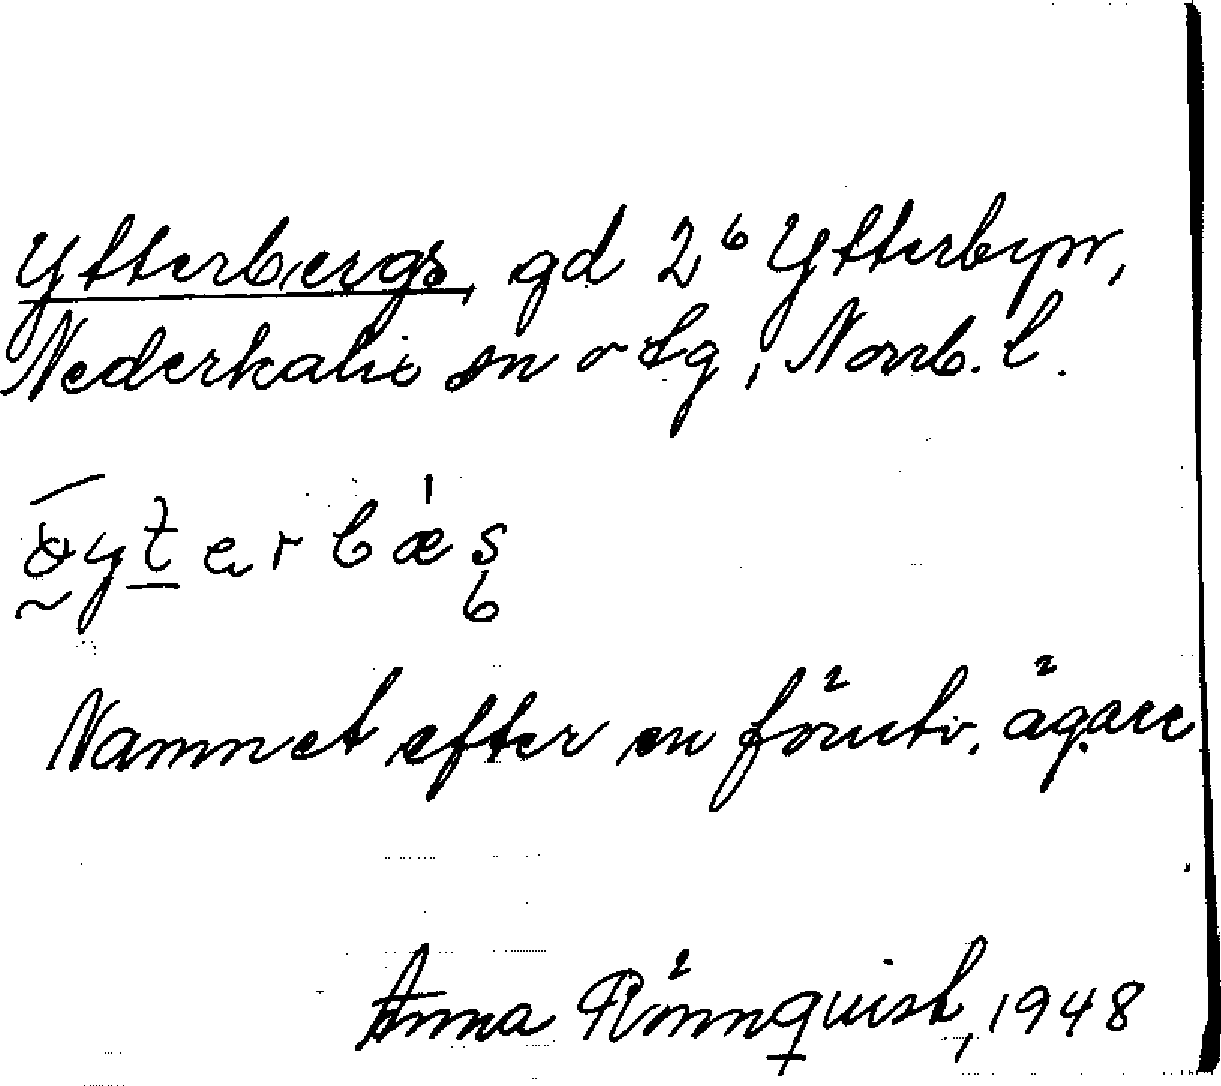 Ytterbergs, gd 2⁶ Ytterbyn,
Nederkalix sn o tg, Norrb. l.
Namnet efter en förutv. ägare
Anna Rönnquist, 1948